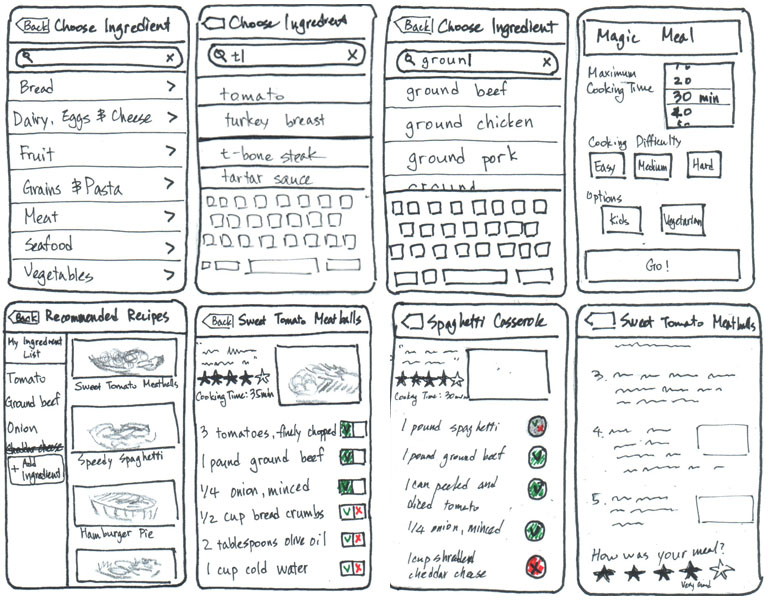 Back Choose Ingredient
x
Bread >
Dairy, Eggs & Cheese >
Fruit >
Grains & Pasta >
Meat >
Seafood >
Vegetables >
Choose Ingredient
t| x
tomato
turkey breast
t-bone steak
tartar sauce
Back Choose Ingredient
groun| x
ground beef
ground chicken
ground pork
ground
Magic Meal
Maximum
Cooking Time
20
30 min
40
Cooking Difficulty
Easy Medium Hard
Options
Kids Vegetarian
Go!
Back Recommended Recipes
My Ingredient
List
Tomato
Ground beef
Onion
Cheddar cheese
+ Add
Ingredient
Sweet Tomato Meatballs
Speedy Spaghetti
Hamburger Pie
Back Sweet Tomato Meatballs
Cooking Time: 35min
3 tomatoes, finely chopped
1 pound ground beef
1/4 onion, minced
1/2 cup bread crumbs
2 tablespoons olive oil
1 cup cold water
Spaghetti Casserole
Cooking Time: 30min
1 pound spaghetti
1 pound ground beef
1 can peeled and
diced tomato
1/4 onion, minced
1 cup shredded
cheddar cheese
Sweet Tomato Meatballs
3.
4.
5.
How was your meal?
Very Good